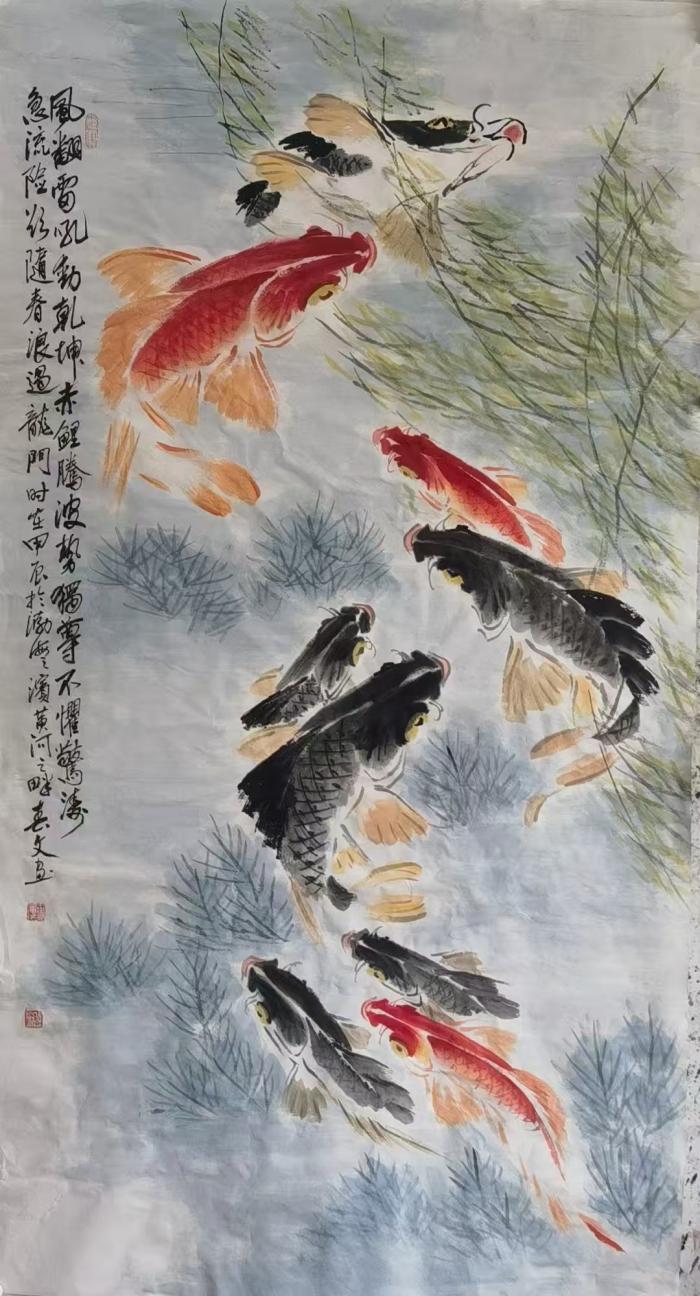 風翻雷吼動乾坤赤鯉騰波勢獨尊不懼驚濤
急流险欲隨春浪過龍門时在甲辰於渤海之濱黄河之畔春文画